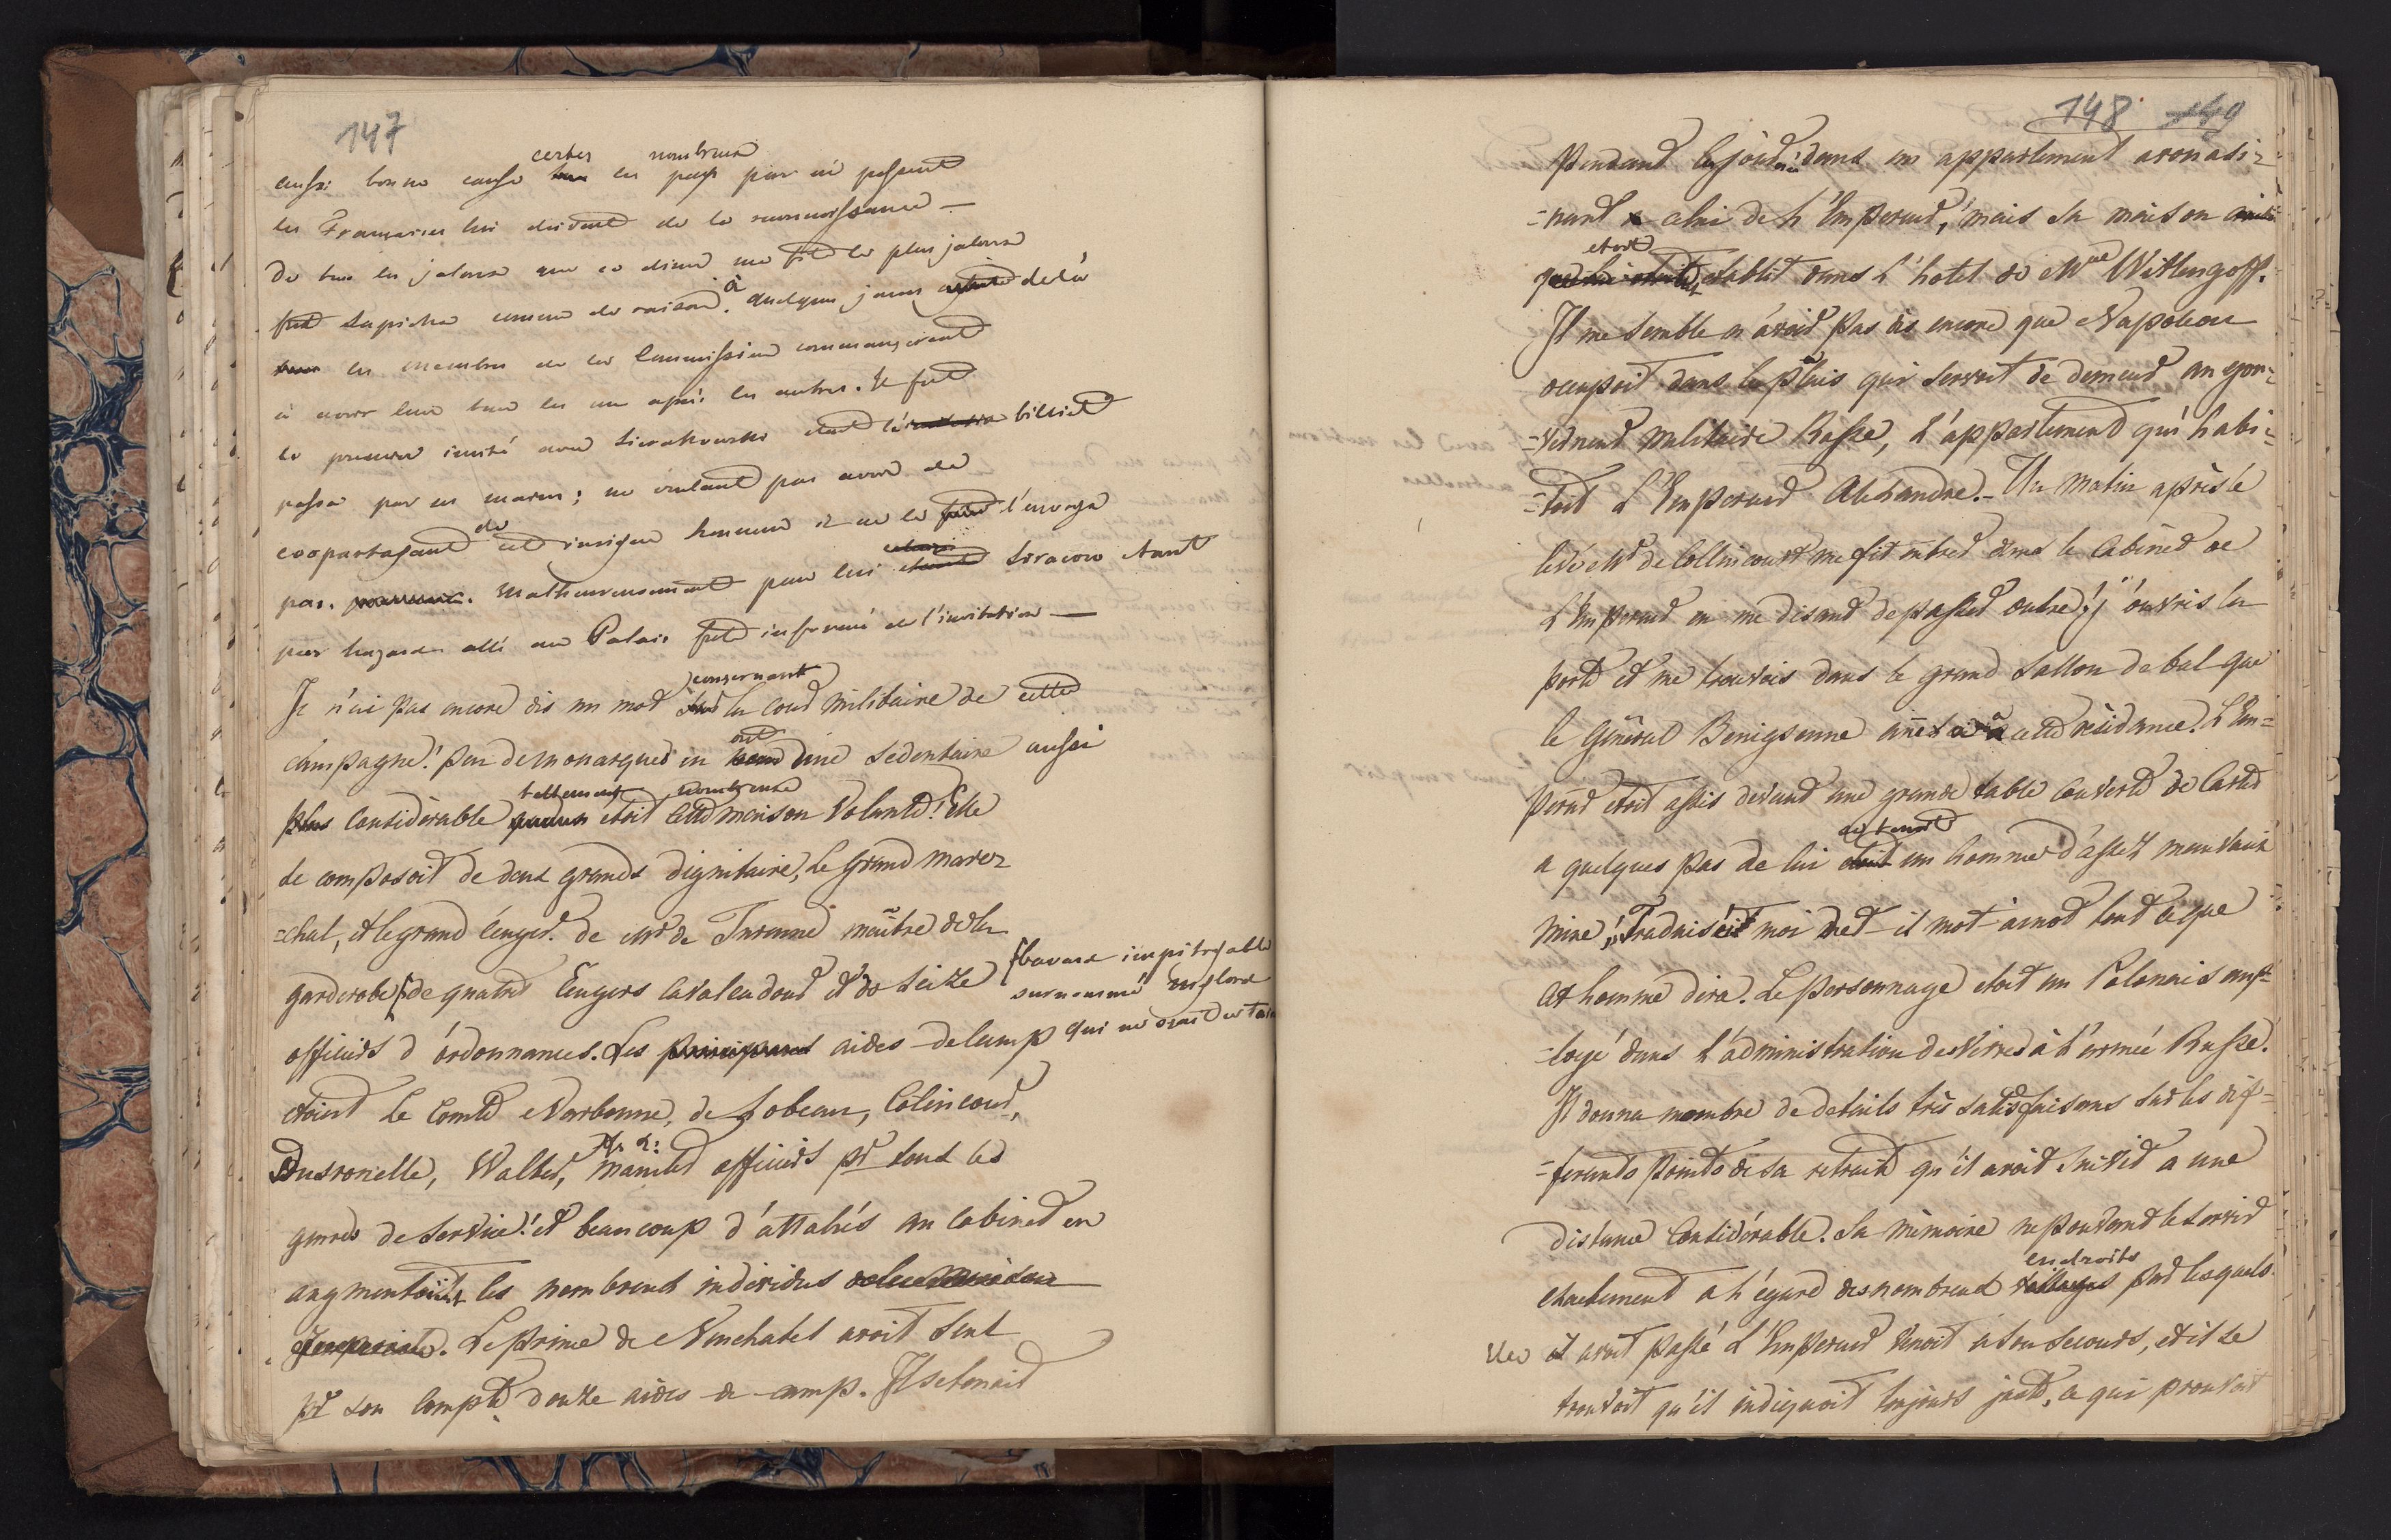 147
certes nombreux
aussi bonne cause les pays par où passent
les Françaises lui doivent de la reconnoissance —
De tous les jaloux que ce diner me fit le plus jaloux
fut Sapieha comme de raison. à quelques jours delà
les membres de la Commission commançerent
à avoir leur tour les uns après les autres. Je fus
le premier invité avec Sierakowski dont le billiet
passa par mes mains; ne voulant pas avoir de
coopartageant de cet insigne honneur je ne le l'envoya
pas. Malheureusement pour lui Soracow étant
par hazard allé au Palais fut informé de l'invitation —
consernant
Je n'ai pas encore dis un mot la cour militaire de cette
campagne! peu de monarques en ont une sédentaire aussi
tellement nombreuse
considérable etoit cette maison volante! Elle
se composoit de deux grands dignitaire, le Grand mare=
=chal, et le grand écuyer. de Mr de Turenne maître de la
garderobe de quatre Ecuyers cavalcadour et de seize
[bavard impitoyable
surnommé
qui ne
officiers d'ordonnances. Les aides-decamp
étoient Le Comte Narbonne, de Lobeau, Colincour,
Dusronelle, Walter, officiers pr tout les
genres de service! et beaucoup d'attahés au cabinet en
augmentoient les nombreux individus
Le Prince de Neuchatel avoit seul
pr son compte douze aides-de-camp. Il se tenoit
148 149
Pendant le séjour dans un appartement avoiasi=
=nant a celui de l'Empereur, mais sa maison
etoit
etablit dans l'hotel de Mme Wittengoff.
Il me semble n'avoir pas dis encore que Napoleon
occupoit dans le palais qui servoit de demeur au gou=
=verneur militaire Russe, l'appartement qu'habi=
=toit l'Empereur Alexandre. — Un matin après le
levé Mr de Collincourt me fit entrer dans le Cabinet de
l'Empereur en me disant de passer outre; j'ouvris la
porte et me trouvois dans le grand sallon de bal que
le Général Benigsenne cette résidance. L'Em=
pereur etoit assis devant une grande table couverte de Carte
se tenoit
a quelques pas de lui un homme d'assez mauvaise
mine! "Traduisés moi dit-il mot-àmot tout ce que
cet homme dira. Le personnage etoit un Polonais emp=
=loyé dans l'administration des vivres à l'armée Russe.
Il donna nombre de details très satisfaisans sur les dif=
=ferents points de sa retraite qu'il avoit suivit a une
distance considérable. Sa mémoire ne pouvant le servir
endroits
exactement a l'égard des nombreux par lesquels
il avoit passé l'Empereur venoit à son secours, et il se
trouvoit qu'il indiquoit toujours juste, ce qui prouvoit